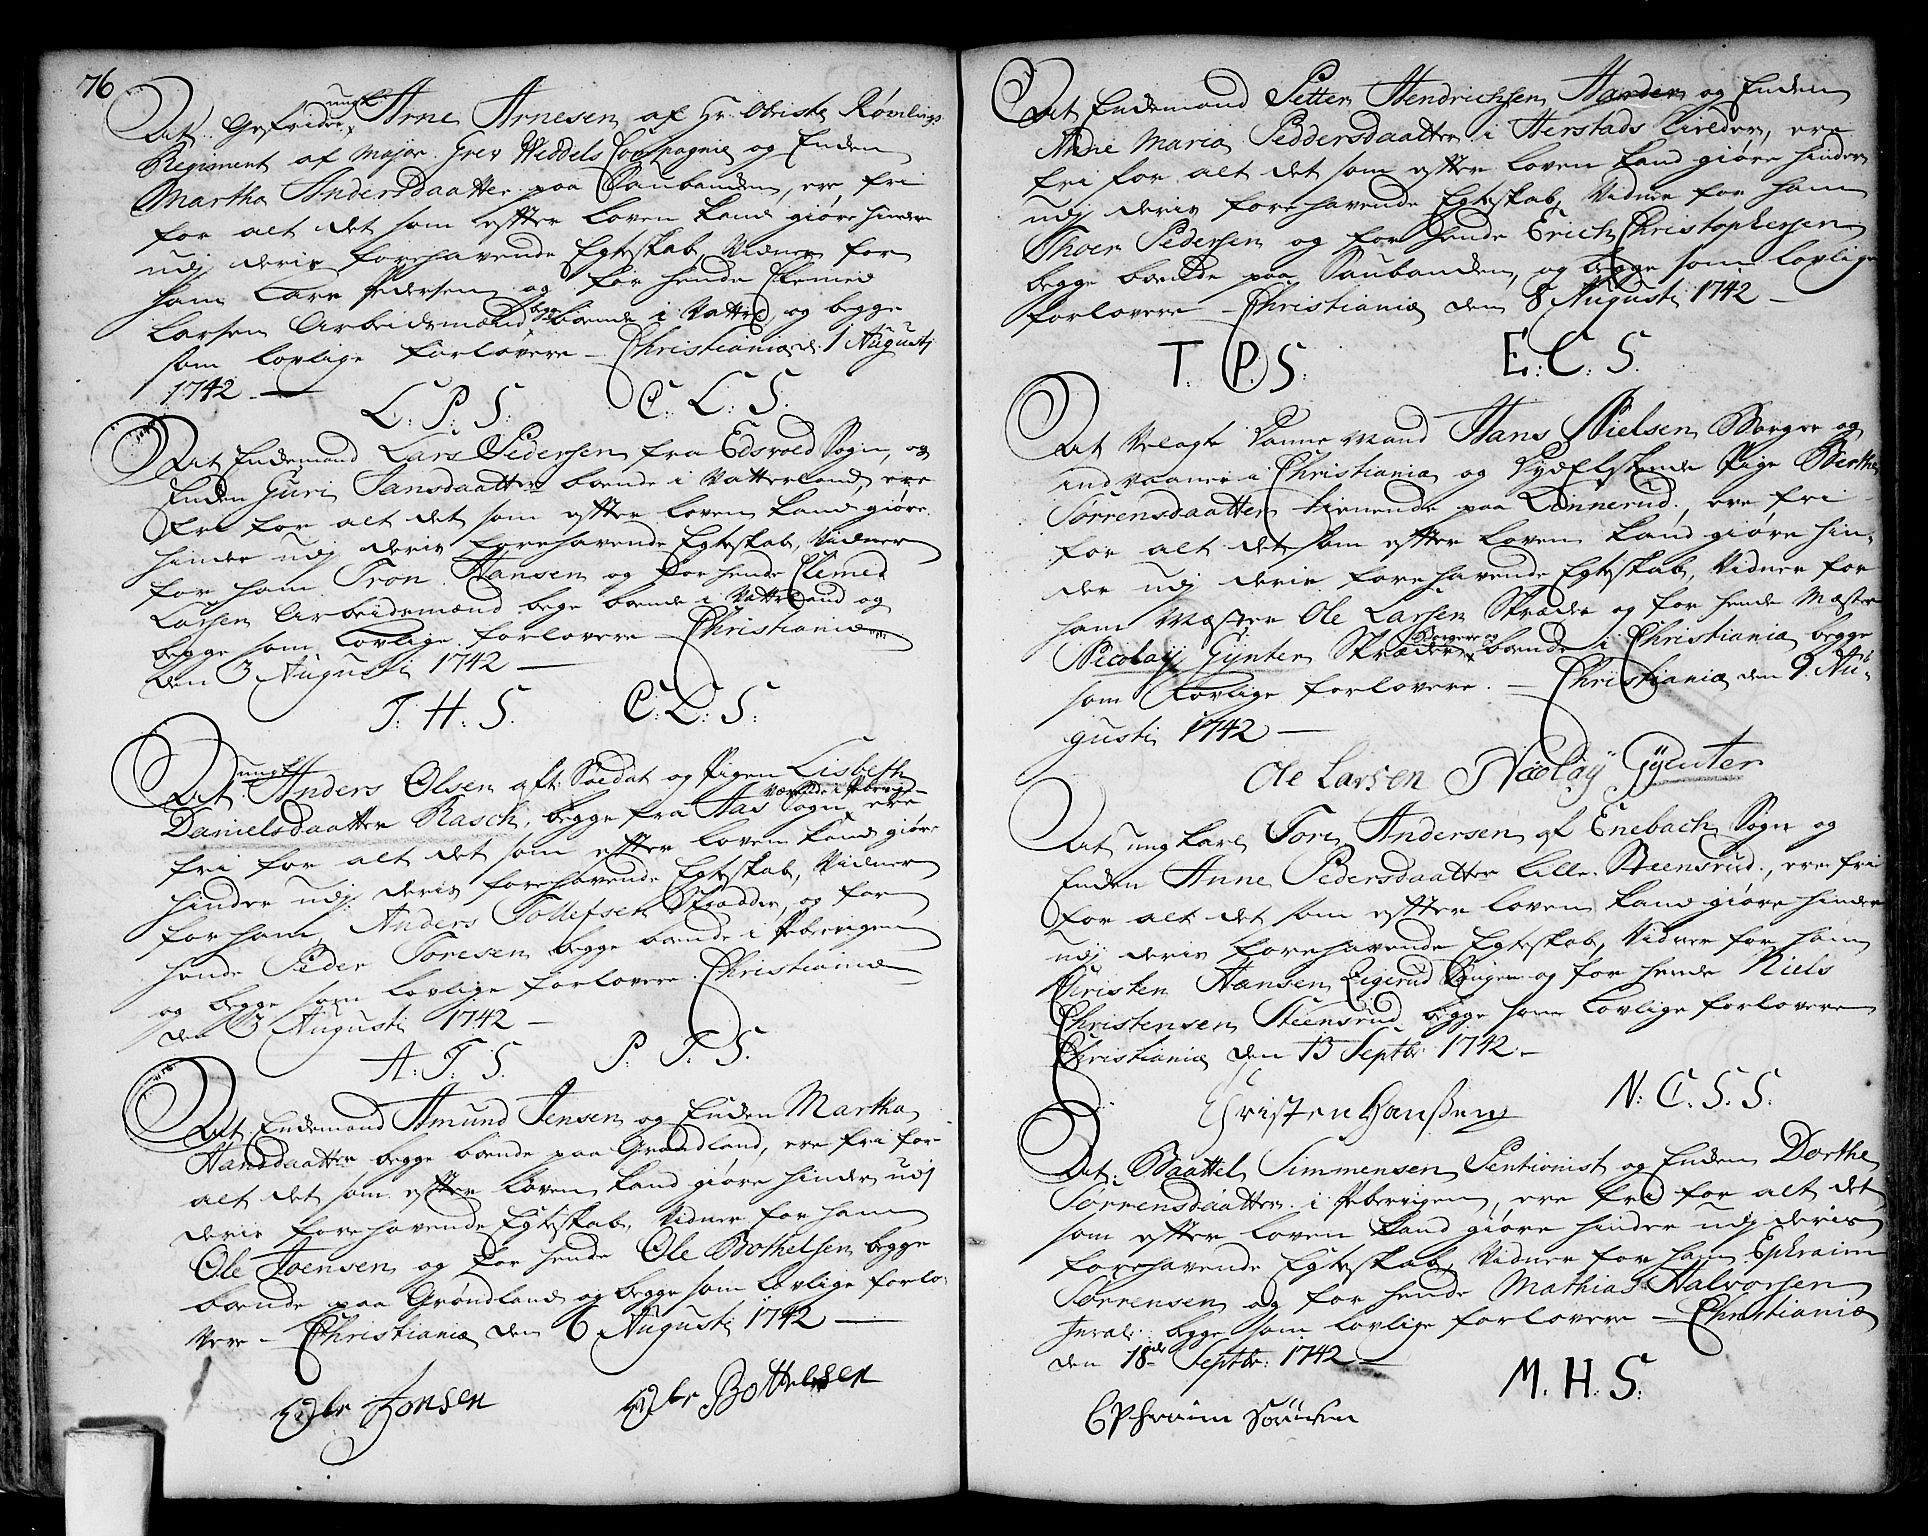 76
At Gefrider ungk. Arne Arnesen af Hr. Obriste Rømlings
Regiment af Major Grev Weddels Compagnie og Enden
Martha Andersdaatter paa Saubanden, ere fri
for alt det som efter loven kand giøre hinder
udj deris forehavende Egteskab, Vidner for
ham Lars Pedersen og for hende Clemed
Larsen Arbeidsmænd begge boende i Vatterl. og begge
som lovlige forlovere – Christiania d. 1 Augustj
1742 –
L. P. S. C. L. S.
At Enckemand Lars Pedersen fra Edsvold Sogn, og
Enden Guri Jansdaatter boende i Vatterland, ere
fri for alt det som efter loven kand giøre
hinder udj deris forehavende Egteskab, Vidner
for ham Tron Hansen og for hende Clemed
Larsen Arbeidsmænd bege boende i Vatterland og
begge som lovlige forlovere – Christiania
den 3 Augusti 1742 –
T. H. S. C. L. S.
At ungk. Anders Olsen aft: Soldat og Pigen Lisbeth
Danielsdaatter Rasch, begge fra Aas Sogn værende i Pebervigen ere
fri for alt det som efter loven kand giøre
hinder udj deris forehavende Egteskab, Vidner
for ham Anders Tollefsen Skrædder, og for
hende Peder Toresen begge boende i Pebervigen
og begge som lovlige forlovere Christiania
den 3 Augusti 1742 –
A. T. S. P. T. S.
At Enckemand Amund Jensen og Enden Martha
Hansdaatter begge boende paa Grøndland, ere fri for
alt det som efter loven kand giøre hinder udj
deris forehavende Egteskab, Vidner for ham
Ole Joensen og for hende Ole Bothelsen begge
boende paa Grøndland og begge som lovlige forlo-
vere – Christiania den 6 Augusti 1742 –
Ole Jonsen Ole Bottelsen
At Enckemand Petter Hendrichsen Harder og Enden
Anne Maria Peddersdaatter i Herstads Kirkdør, ere
fri for alt det som efter loven kand giøre hinder
udj deris forehavende Egteskab, Vidner for ham
Thoer Pedersen og for hende Erich Christophersen
begge boende paa Saubanden, og begge som lovlige
forlovere – Christiania den 8 Augusti 1742 –
T. P. S. E. C. S.
At Velagte Danne Mand Hans Nielsen Borger og
indvaaner i Christiania og Dydelskende Pige Berthe
Sørrensdaatter tienende paa Linnerud, ere fri
for alt det som efter loven kand giøre hin-
der udj deris forehavende Egteskab, Vidner for
ham Mæster Ole Larsen Skræder og for hende Mæster
Nicolay Gynter Skræder Borgere og boende i Christiania begge
som lovlige forlovere. – Christiania den 9 Au-
gusti 1742 –
Ole Larsen Nicolaÿ Gÿnter
At ungkarl Tore Andersen af Enebach Sogn og
Enden Anne Pedersdaatter Lille Steensrud, ere fri
for alt det som efter loven kand giøre hinder
udj deris forehavende Egteskab, Vidner for ham
Christen Hansen og for hende Niels
Christensen Steensrud begge som lovlige forlovere
Christiania den 13 Septbr 1742 –
Christen Hanßen N. C. S. S.
At Baattel Simmensen Pentionist og Enden Dorthe
Sørrensdaatter i Pebervigen, ere fri for alt det
som efter loven kand giøre hinder udj deris
forehavende Egteskab, Vidner for ham Ephraim
Sørrensen og for hende Mathias Halvorsen
Inval: begge som lovlige forlovere – Christiania
den 18de Septbr: 1742 –
M. H. S.
Ephraim Sörensen